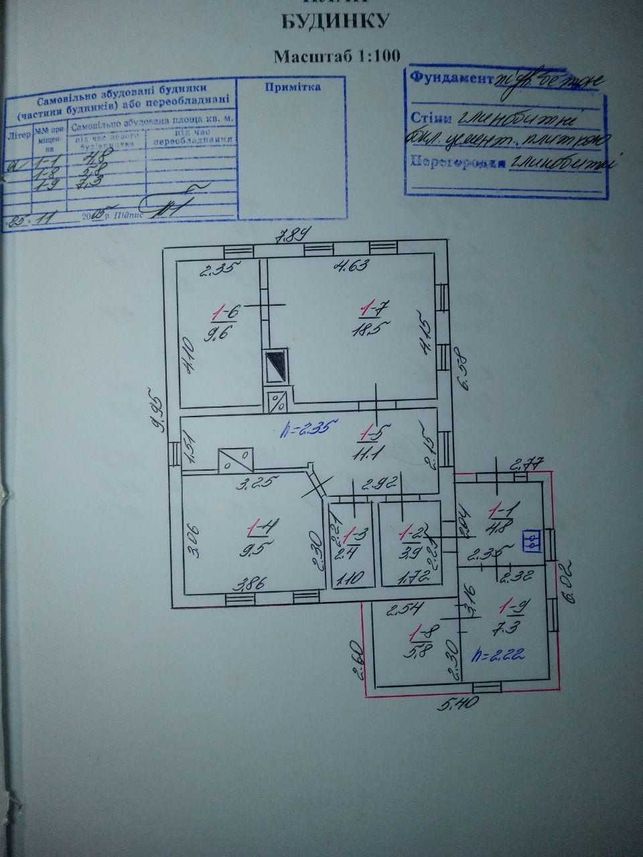 БУДИНКУ
Масштаб 1:100
Самовільно збудовані будинки
(частини будинків) або переобладнані
Примітка
Літер
№№ приміщення
Самовільно збудована площа кв. м.
під час нового будівництва
під час переобладнання
а 1-1 4.8
1-8 5.8
1-9 7.3
25.11 2005 р. Підпис
Фундамент
Стіни глинобитне
обл. цемент. плиткою
Перегородки глинобитні
7.89
2.35
4.63
1-6
9.6
1-7
18.5
4.10
4.15
6.58
9.95
h=2.35
1-5
11.1
1.51
2.15
3.25
2.92
2.77
1-4
9.5
3.06
2.30
2.21
1-3
2.4
1-2
3.9
2.27
1-1
4.8
2.04
2.35
3.86
1.10
1.72
2.32
6.02
2.54
3.16
1-9
7.3
1-8
5.8
2.60
2.30
h=2.22
5.40